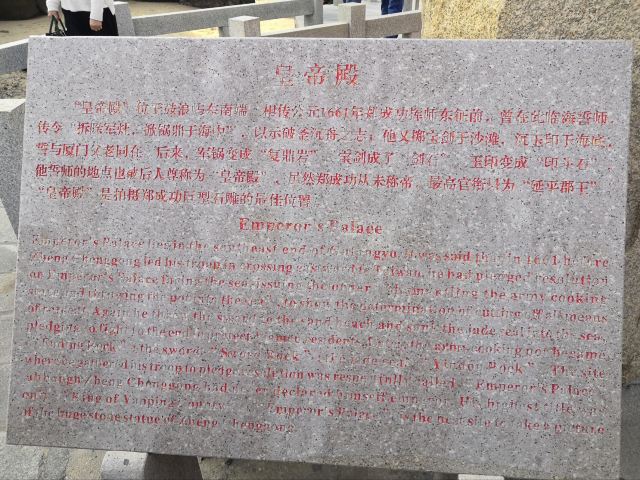 皇帝殿
"皇帝殿"位于鼓浪屿东南端。相传公元1661年郑成功挥师东征前，曾在此临海誓师，
传令"拆除军灶，掀锅鼎于海内"，以示破釜沉舟之志；他又掷宝剑于沙滩，沉玉印于海底，
誓与厦门父老同在。后来，军锅变成"复鼎岩"，宝剑成了"剑石"，玉印变成"印斗石"，
他誓师的地点也被后人尊称为"皇帝殿"，虽然郑成功从未称帝，最高官衔只为"延平郡王"。
"皇帝殿"是拍摄郑成功巨型石雕的最佳位置。
Emperor's Palace
Emperor's Palace lies in the southeast end of Gulangyu. It was said that in 1661 before
Zheng Chenggong led his troop in crossing eastward to Taiwan, he had pledged resolution
on Emperor's Palace facing the sea, issuing the order the army cooking
and throwing the pot into the sea, to show the determination of cutting off all means
of retreat. Again he threw the sword to the sand beach and sank the jade seal into the sea,
pledging to fight to the end the cooking pot became
the sword "Sword Rock" "Yindou Rock". The site
where he gathered his troop to pledge resolution was respectfully called "Emperor's Palace"
although Zheng Chenggong had never declared himself emperor. His highest title was
"King of Yanping" only. "Emperor's Palace" is the best site to take a picture
of the huge stone statue of Zheng Chenggong.